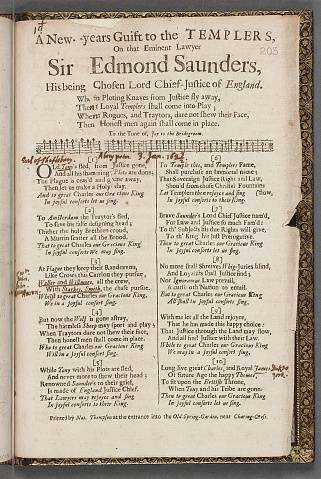 1d
A New-years Guift to the TEMPLERS,
On that Eminent Lawyer
203
Sir Edmond Saunders,
His being Chosen Lord Chief-Justice of England.
When Ploting Knaves from Justice fly away,
Then Loyal Templers shall come into Play;
When Rogues, and Traytors, dare not shew their Face,
Then Honest men again shall come in place.
To the Tune of, Joy to the Bridegroom.
3. Jan. 1682/3
[1]
Old Tony's fled, from Justice gone,
And all his shamming Plots are done;
The Plague is ceas'd and gone away,
Then let us make a Holy-day.
And to great Charles our Gracious King
In joyful consorts let us sing.
[2]
To Amsterdam the Traytor's fled,
To save his false disguised head;
Thither the holy Brethren crowd,
A Murrin sincer all the Brood.
That to great Charles our Gracious King
In Joyful consorts We may sing.
[3]
At Hague they keep their Rendezvous,
Like Crows this Carrion they pursue,
Waller and Wildmore, all the crew,
With Starkey, Smith, the chase pursue.
Whilst to great Charles our Gracious King,
We in a joyful consort sing.
[4]
But now the Wolf is gone astray,
The harmless Sheep may sport and play;
When Traytors dare not shew their face,
Then honest men shall come in place.
Who to great Charles our Gracious King
Will in a Joyful consort sing.
[5]
While Tony with his Plots are fled,
And never more to shew their head;
Renowned Saunders to their grief,
Is made of England Justice Chief.
That Lawyers may rejoyce and sing
In joyful consorts to their King.
[6]
To Temple this, and Templers Fame,
Shall purchase an Immortal name;
That Sovereign Justice Right and Law,
Shou'd from those Christial Fountains flow,
Let Templers then rejoyce and sing
In Joyful consorts to the King.
[7]
Brave Saunder's Lord Chief Justice nam'd,
For Law and Justice so much Fam'd:
To th' Subjects his due Rights will give,
To th' King his just Prerogative.
Then to great Charles our Gracious King
In Joyful consorts let us sing.
[8]
No more shall Shrieves Whig-Juries blind,
And Loyalists shall Justice find;
Nor Ignoramus Law prevail,
A Guilti'oth Nation to entail.
But to great Charles our Gracious King
All shall in Joyful consorts sing.
[9]
With me let all the Land rejoyce,
That he has made this happy choice:
That Justice through the Land may flow,
And all find Justice with their Law.
While to great Charles our Gracious King
We may in a joyful consort sing.
[10]
Long live great Charles, and Royal James
Of future Age the happy Themes,
To sit upon the British Throne,
When Tony and his Tribe are gone:
Then to great Charles our Gracious King
In Joyful consorts let us sing.
Printed by Nat. Thompson at the entrance into the Old-Spring-Garden, near Charing-Cross.